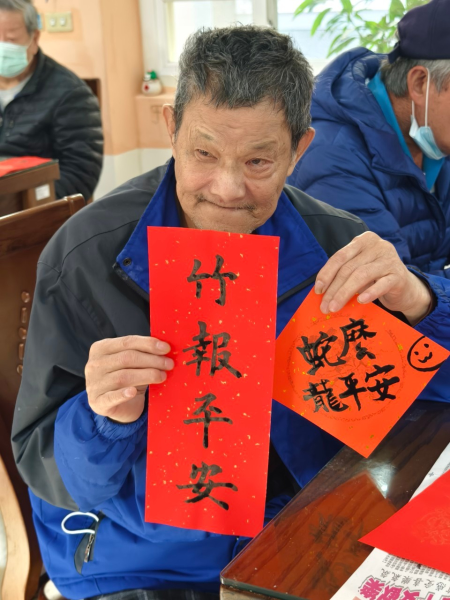 竹報平安
蛇麼
龍平安